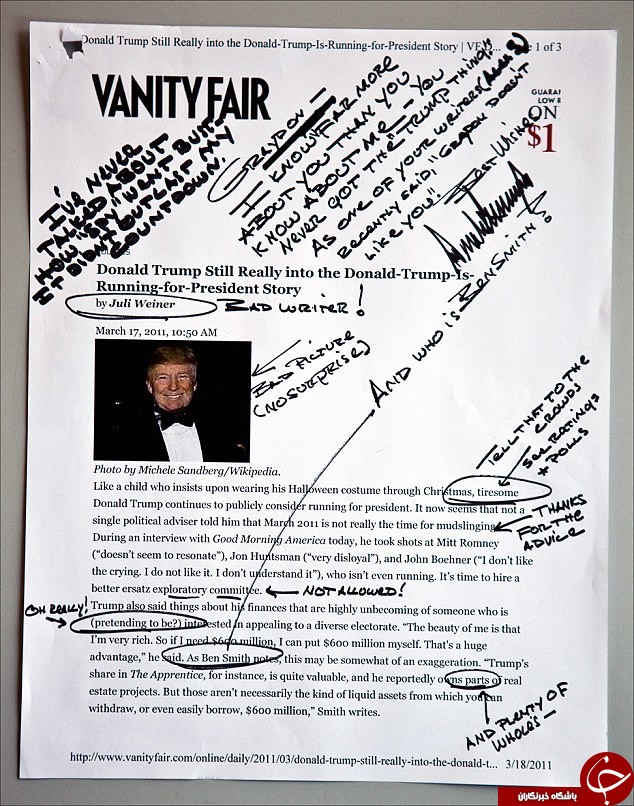 Donald Trump Still Really into the Donald-Trump-Is-Running-for-President Story | VF D... e 1 of 3
VANITY FAIR
GUARA
LOW
ON
$1
GRAYDON —
I KNOW FAR MORE
ABOUT YOU THAN YOU
KNOW ABOUT ME — YOU
NEVER GOT THE TRUMP THING!
AS ONE OF YOUR WRITERS
RECENTLY SAID, "GRAYDON DOESN'T
LIKE YOU!"
BEST WISHES
I'VE NEVER
TALKED ABOUT
HOW "SPY" WENT BUST
IT DIDN'T OUTLAST MY
COUNTDOWN!
Donald Trump Still Really into the Donald-Trump-Is-
Running-for-President Story
by Juli Weiner
BAD WRITER!
AND WHO IS BEN SMITH?
March 17, 2011, 10:50 AM
BAD PICTURE
(NO SURPRISE)
TELL THAT TO THE
CROWDS
SEE RATINGS
+ POLLS
Photo by Michele Sandberg/Wikipedia.
Like a child who insists upon wearing his Halloween costume through Christmas, tiresome
Donald Trump continues to publicly consider running for president. It now seems that not a
single political adviser told him that March 2011 is not really the time for mudslinging.
THANKS
FOR THE
ADVICE
During an interview with Good Morning America today, he took shots at Mitt Romney
("doesn't seem to resonate"), Jon Huntsman ("very disloyal"), and John Boehner ("I don't like
the crying. I do not like it. I don't understand it"), who isn't even running. It's time to hire a
better ersatz exploratory committee.
NOT ALLOWED!
OH REALLY!
Trump also said things about his finances that are highly unbecoming of someone who is
(pretending to be?) interested in appealing to a diverse electorate. "The beauty of me is that
I'm very rich. So if I need $600 million, I can put $600 million myself. That's a huge
advantage," he said. As Ben Smith notes, this may be somewhat of an exaggeration. "Trump's
share in The Apprentice, for instance, is quite valuable, and he reportedly owns parts of real
estate projects. But those aren't necessarily the kind of liquid assets from which you can
withdraw, or even easily borrow, $600 million," Smith writes.
AND PLENTY OF
WHOLES —
http://www.vanityfair.com/online/daily/2011/03/donald-trump-still-really-into-the-donald-t... 3/18/2011
باشگاه خبرنگاران